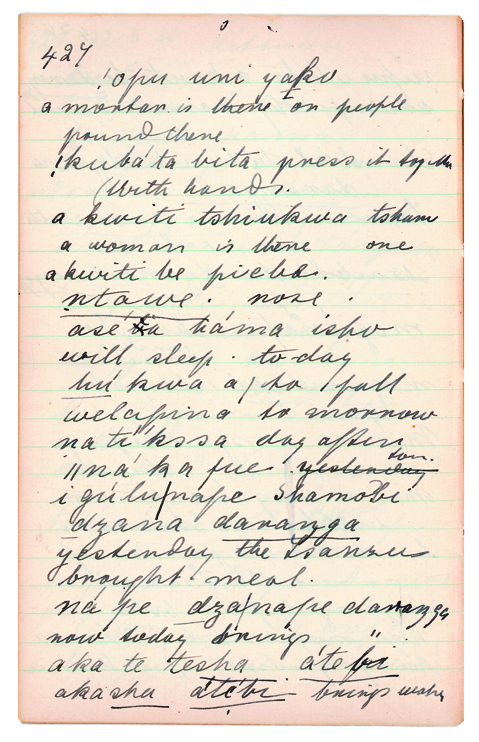 427
'opu uni yako
a mortar is there on people
pound there
!kubá ta bita press it together
(With hands.
a kwiti tshiukwa tsham
a woman is there one
akwiti be piebe.
ntawe. nose.
asé ta háma isho
will sleep. to-day
hú kwa a, to fall
welapina to morrow
na ti kssa day after
"ná ka fue tom.
i gúlu nape Shamobi
dzana daranga
yesterday the tsanzu
brought meal.
ná pe dza nape daranga
now today brings "
aka te tesha átebi
akasha átébi brings water